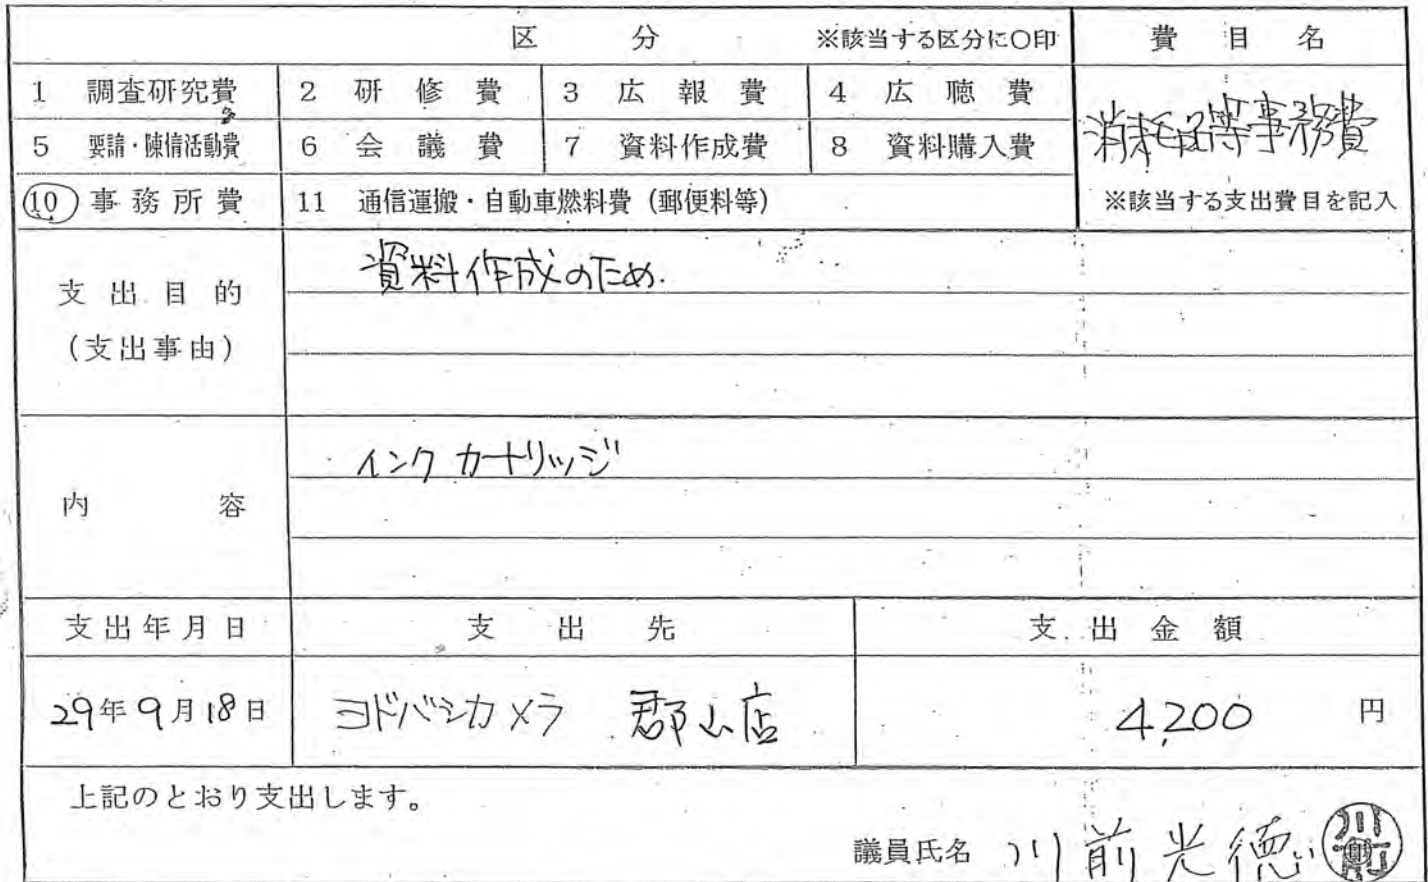 区 分 ※該当する区分に○印 費 目 名
1 調査研究費 2 研 修 費 3 広 報 費 4 広 聴 費
消耗品等事務費
5 要請・陳情活動費 6 会 議 費 7 資料作成費 8 資料購入費
10 事 務 所 費 11 通信運搬・自動車燃料費（郵便料等） ※該当する支出費目を記入
支 出 目 的
（支出事由）
資料作成のため.
内 容
インクカートリッジ
支出年月日 支 出 先 支 出 金 額
29年9月18日 ヨドバシカメラ 郡山店 4,200 円
上記のとおり支出します。
議員氏名 川前光徳 川前